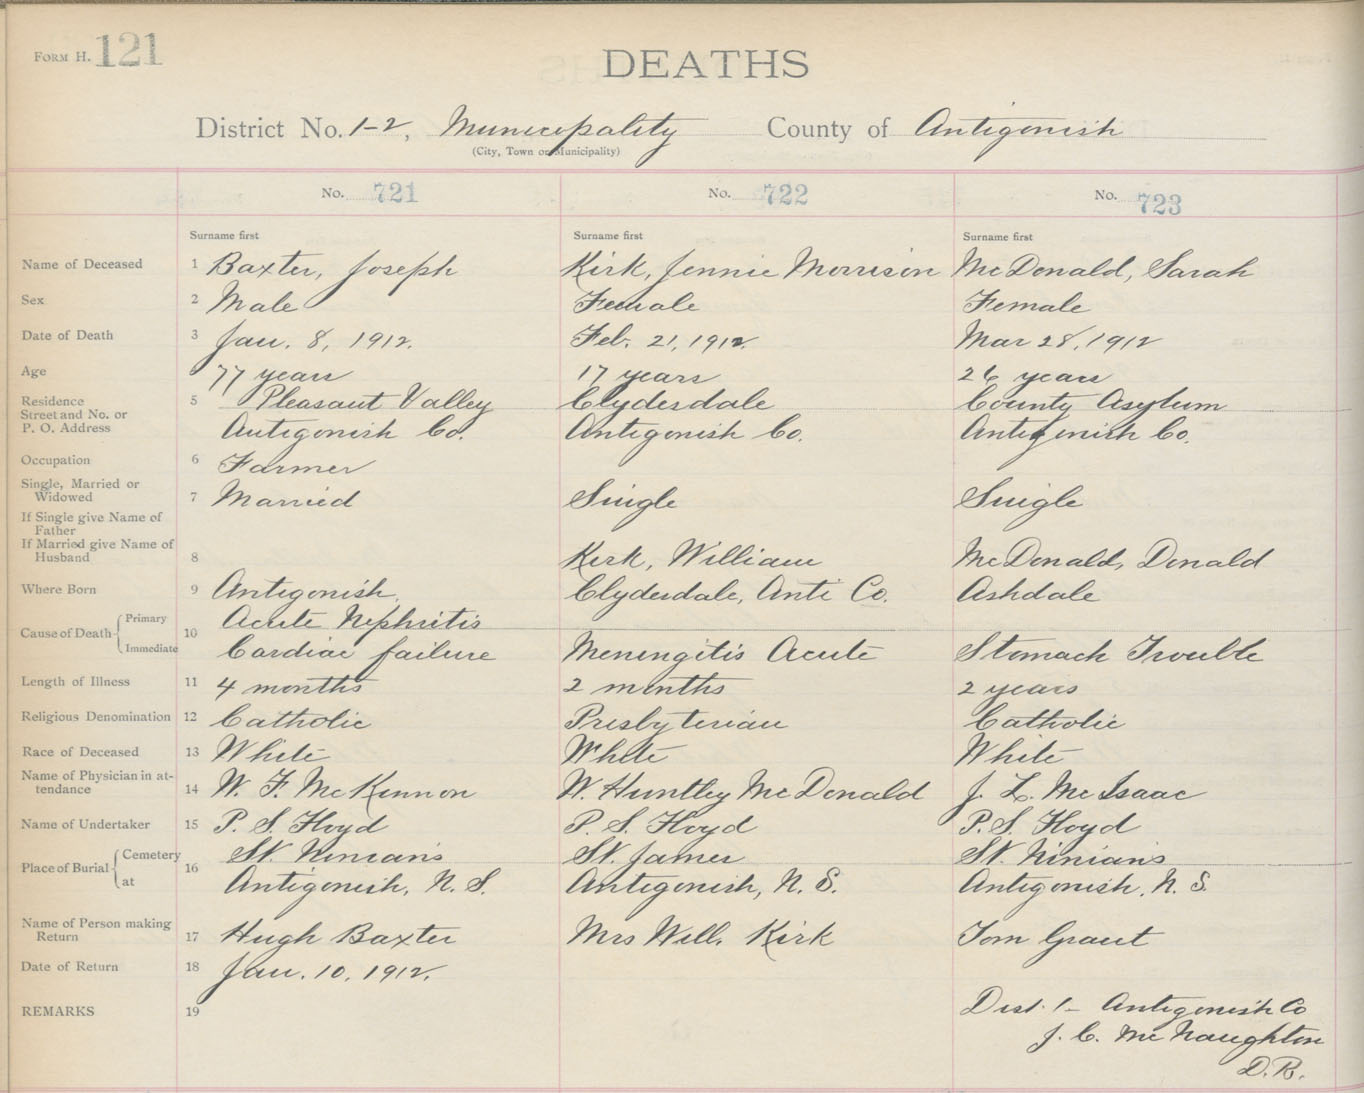 FORM H. 121
DEATHS
District No. 1-2, Municipality County of Antigonish
(City, Town or Municipality)
No. 721 No. 722 No. 723
Surname first Surname first Surname first
Name of Deceased 1 Baxter, Joseph Kirk, Jennie Morrison McDonald, Sarah
Sex 2 Male Female Female
Date of Death 3 Jan. 8, 1912. Feb. 21, 1912. Mar 28, 1912
Age 77 years 17 years 26 years
Residence 5 Pleasant Valley Clydesdale County Asylum
Street and No. or
P. O. Address Antigonish Co. Antigonish Co. Antigonish Co.
Occupation 6 Farmer
Single, Married or
Widowed 7 Married Single Single
If Single give Name of
Father
If Married give Name of
Husband 8 Kirk, William McDonald, Donald
Where Born 9 Antigonish. Clydesdale, Anti Co. Ashdale
Primary Acute Nephritis
Cause of Death 10
Immediate Cardiac failure Meningitis Acute Stomach Trouble
Length of Illness 11 4 months 2 months 2 years
Religious Denomination 12 Catholic Presbyterian Catholic
Race of Deceased 13 White White White
Name of Physician in at-
tendance 14 W. F. McKinnon W. Huntley McDonald J. L. McIsaac
Name of Undertaker 15 P. S. Floyd P. S. Floyd P. S. Floyd
Cemetery St. Ninians St. James St. Ninians
Place of Burial 16
at Antigonish, N. S. Antigonish, N. S. Antigonish, N. S.
Name of Person making
Return 17 Hugh Baxter Mrs Will. Kirk Tom Grant
Date of Return 18 Jan. 10, 1912.
REMARKS 19 Dist. 1- Antigonish Co
J. C. McNaughton
D.R.